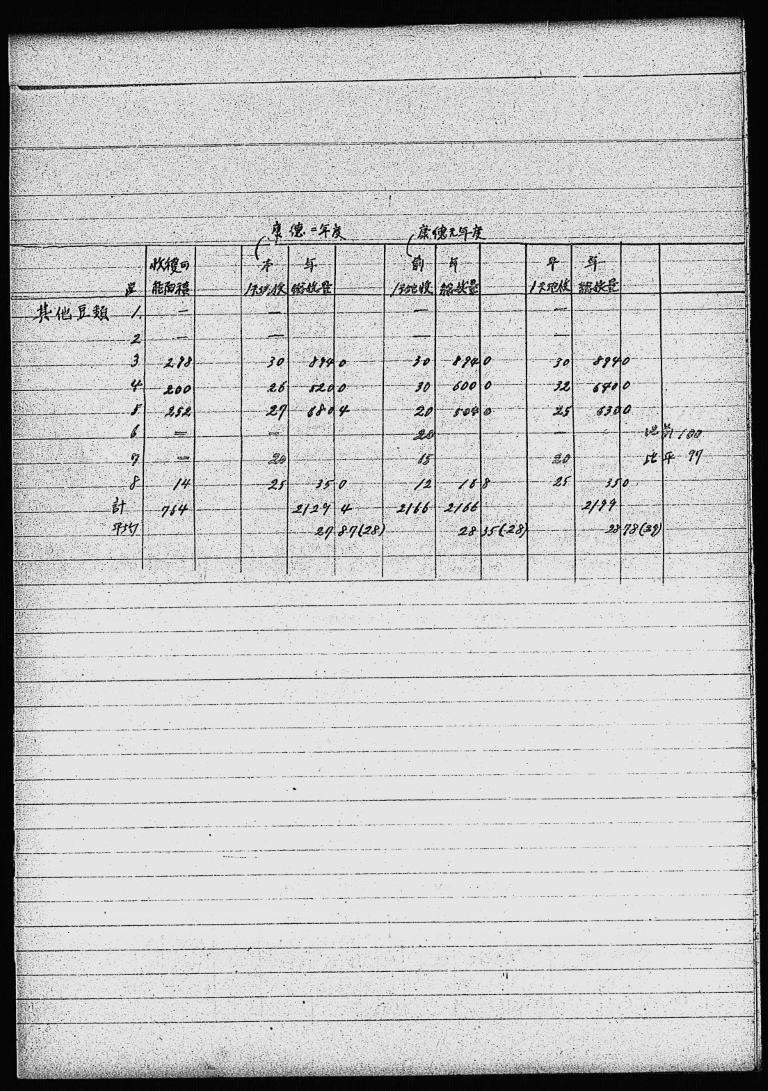 康德二年度 康德元年度
收穫可 本年 前年 平年
區 能面積 1天地收 總收量 1天地收 總收量 1天地收 總收量
其他豆類 1. — — — —
2 — — — —
3 298 30 8940 30 8940 30 8940
4 200 26 5200 30 6000 32 6400
5 252 27 6804 20 5040 25 6300
6 — — 20 — 比前 100
7 — 20 15 20 比平 97
8 14 25 350 12 168 25 350
計 764 2129 4 2166 2166 2199
平均 27 87(28) 28 35(28) 28 78(39)